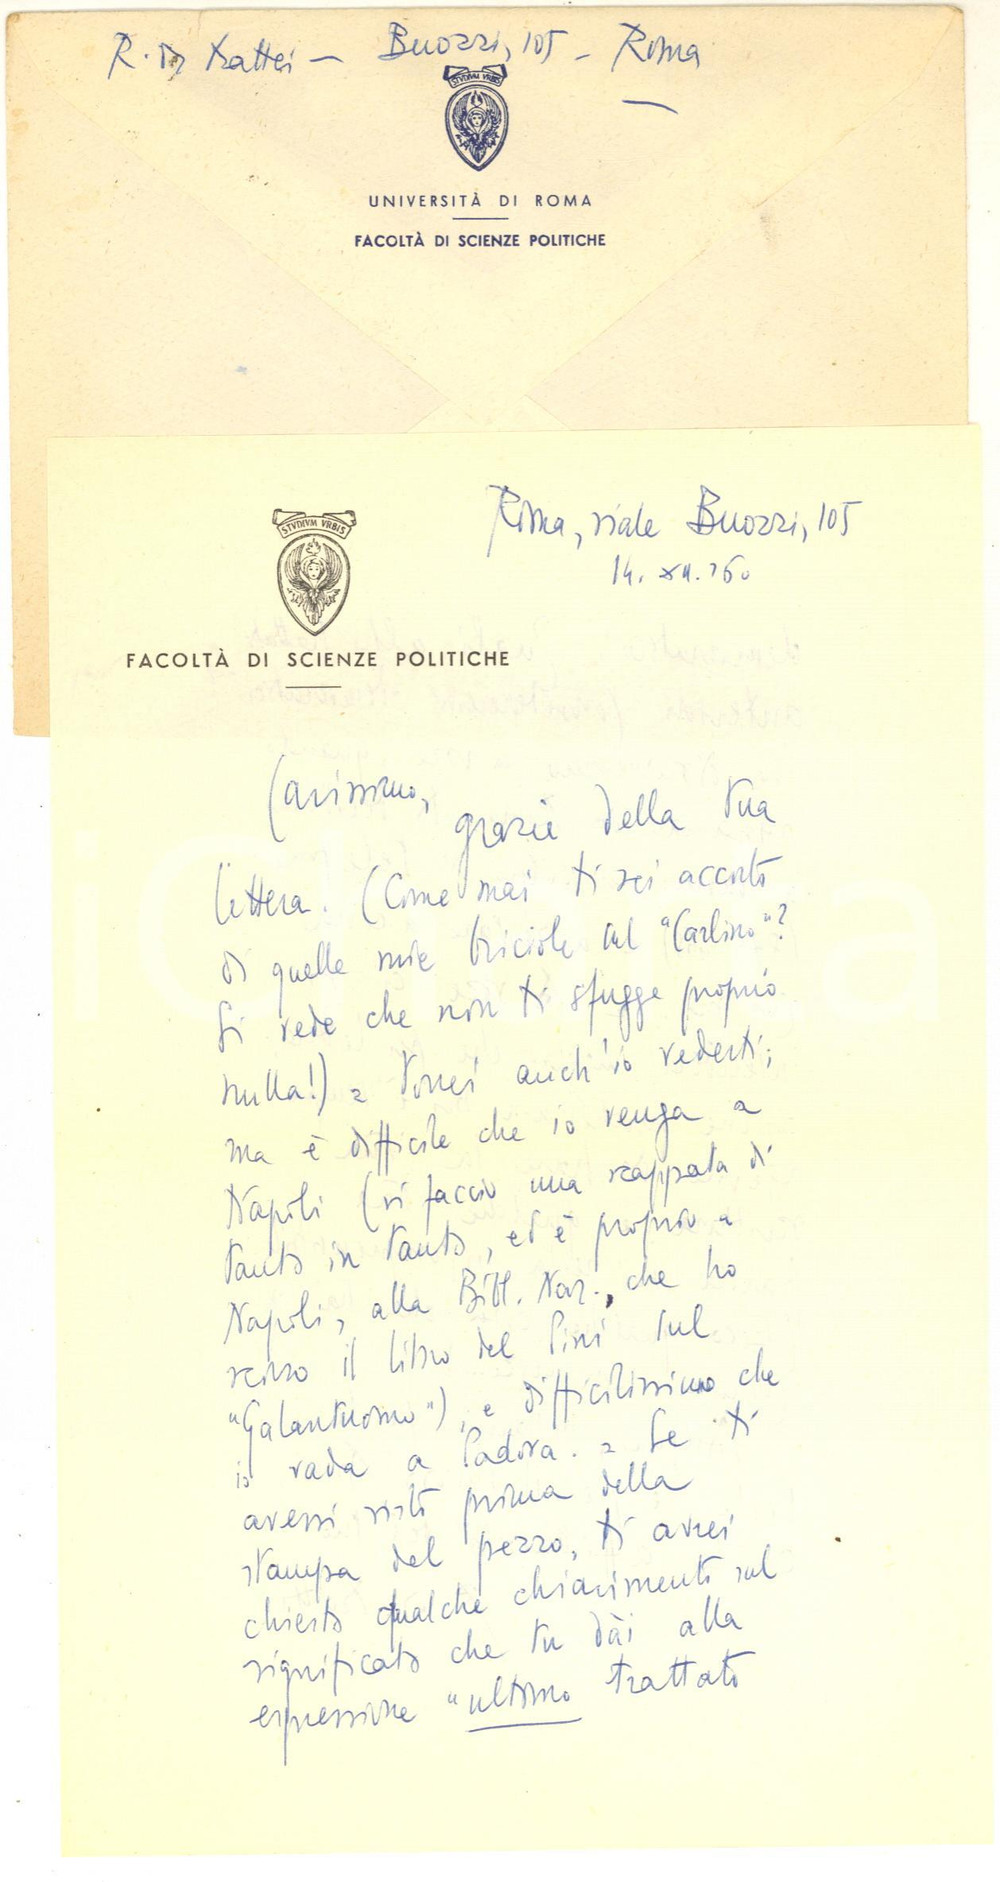 R. De Mattei - Buozzi, 105 - Roma
STVDIVM VRBIS
UNIVERSITÀ DI ROMA
FACOLTÀ DI SCIENZE POLITICHE
STVDIVM VRBIS
FACOLTÀ DI SCIENZE POLITICHE
Roma, viale Buozzi, 105
14. XII. '60
Carissimo,
grazie della tua
lettera. (Come mai ti sei accorto
di quelle mie briciole sul "Carlino"?
Si vede che non ti sfugge proprio
nulla!) = Vorrei anch'io vederti;
ma è difficile che io venga a
Napoli (vi faccio una scappata di
tanto in tanto, ed è proprio a
Napoli, alla Bibl. Naz., che ho
scorso il libro del Pini sul
"Galantuomo"), e difficilissimo che
io vada a Padova. = Se ti
avessi visto prima della
stampa del pezzo, ti avrei
chiesto qualche chiarimento sul
significato che tu dài alla
espressione "ultimo trattato